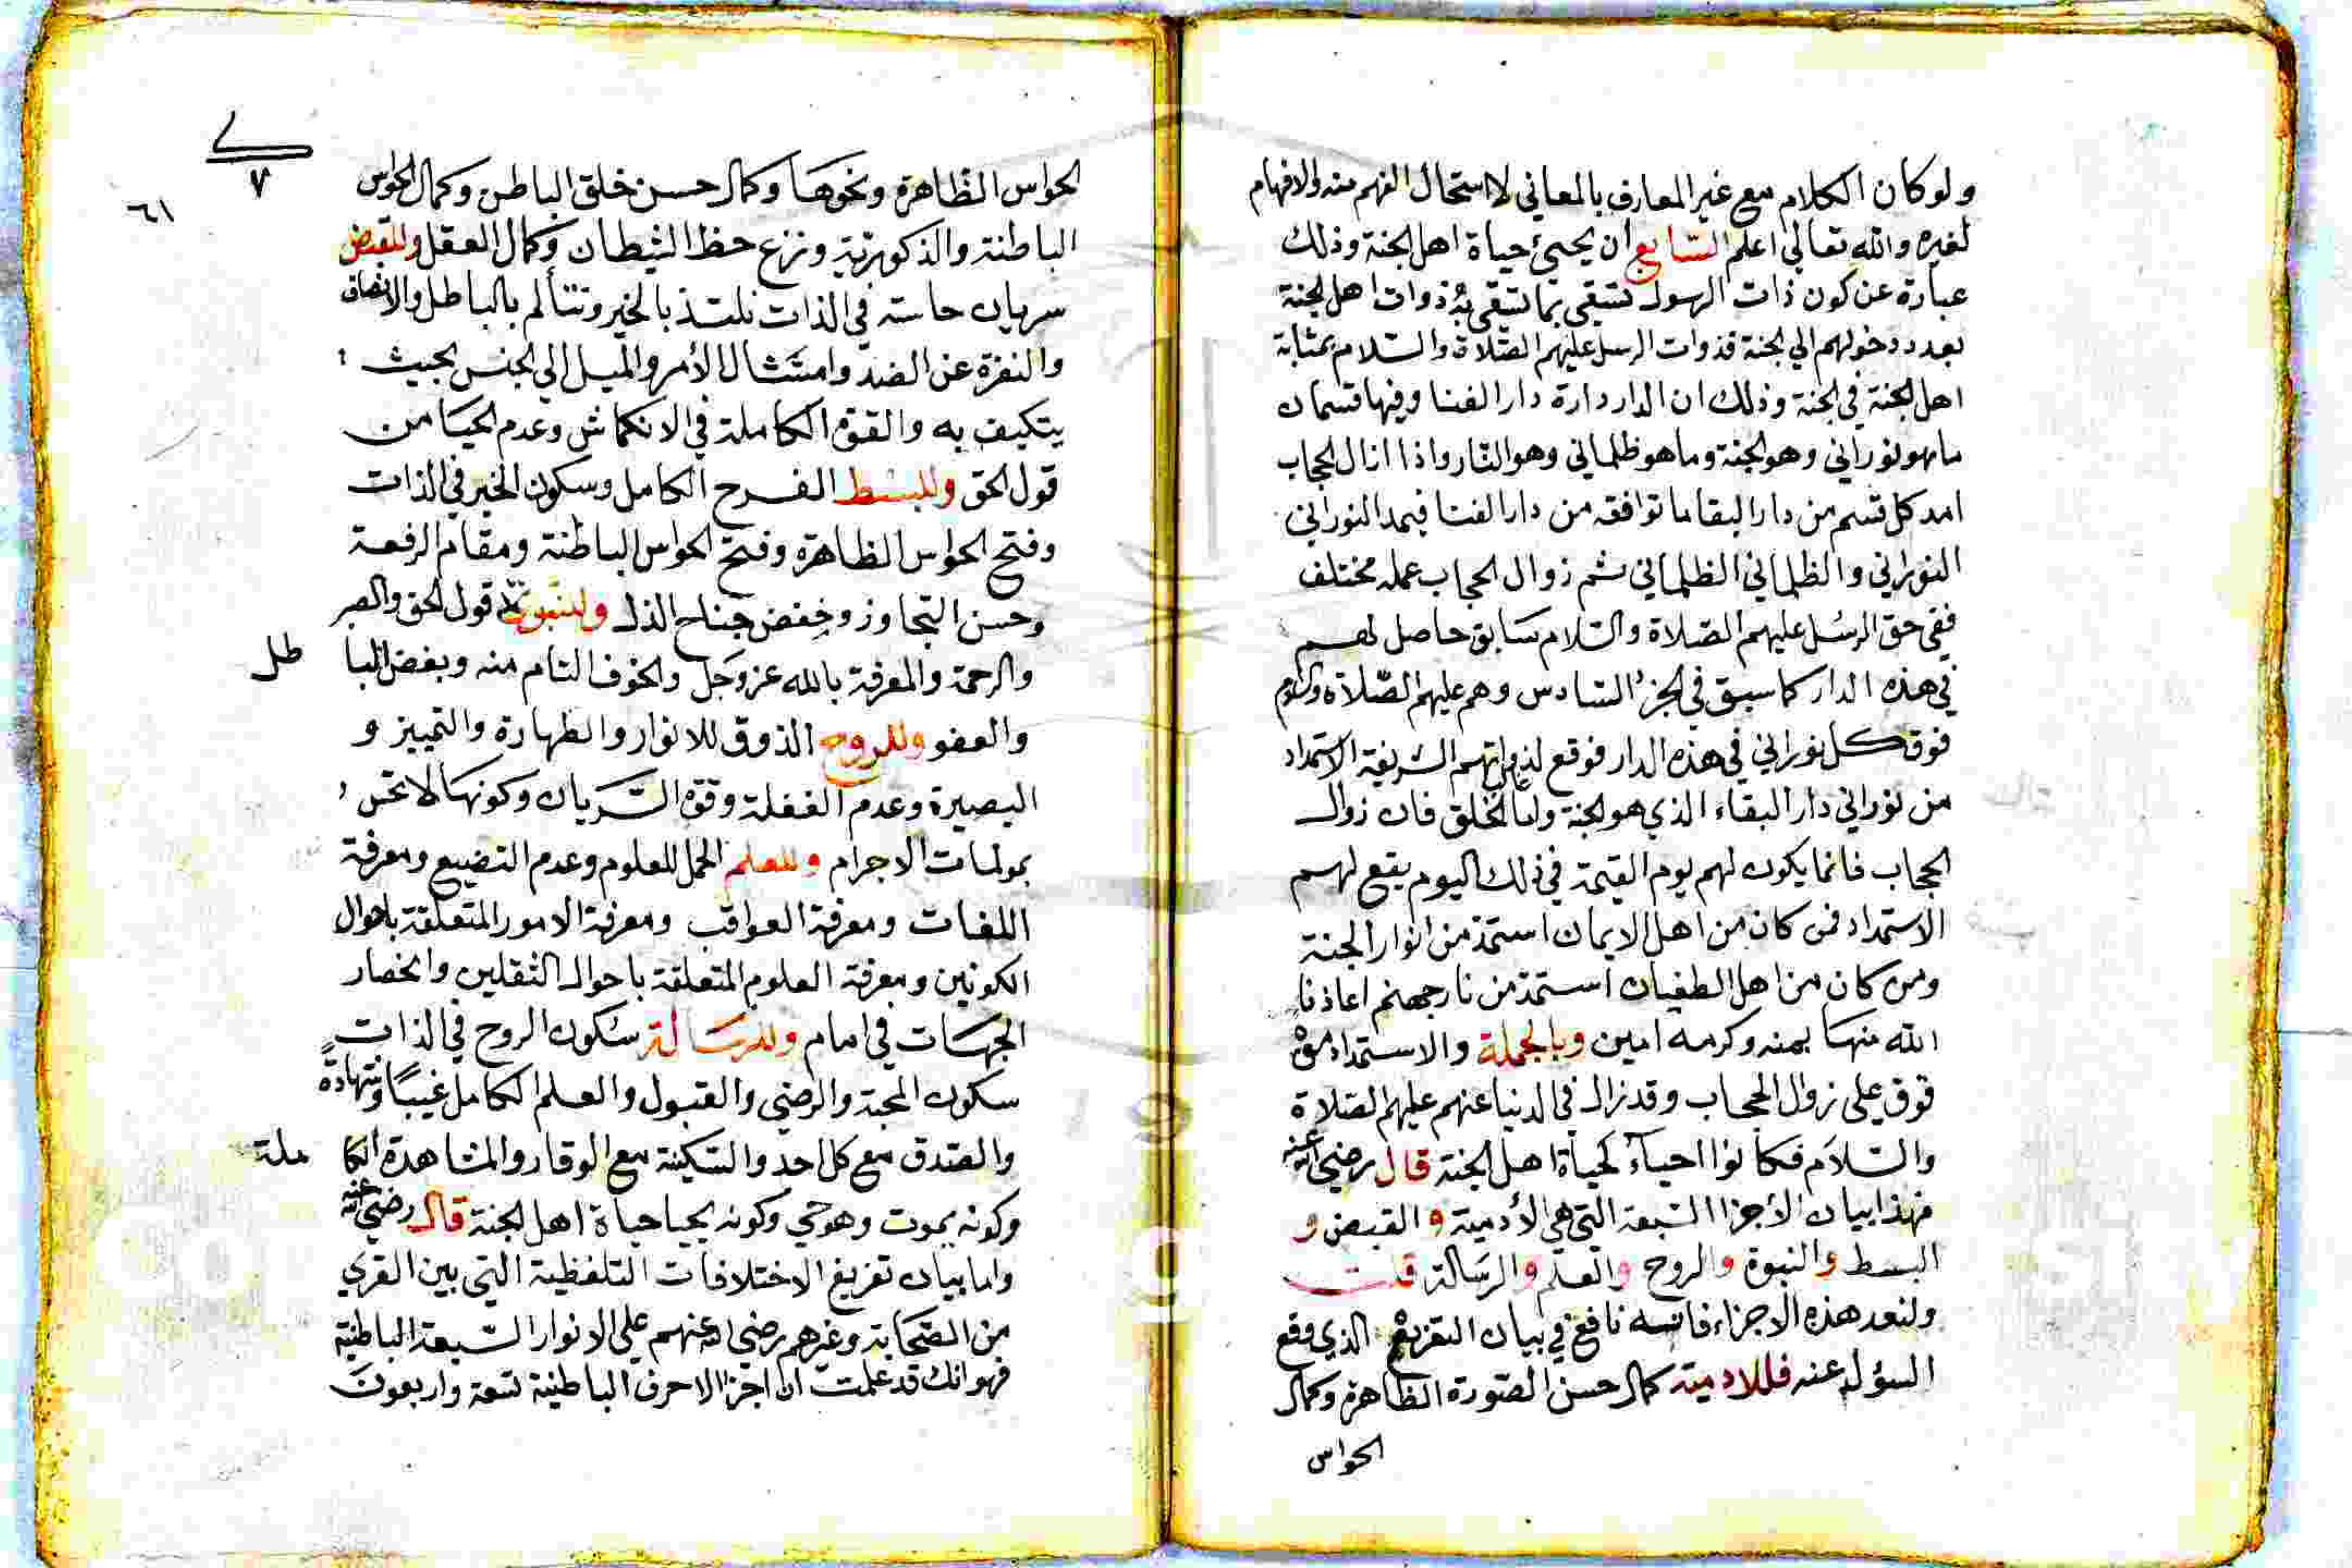 ولو كان الكلام مع غير المعارف بالمعاني لاستحال الفهم منه والافهام
لغيره والله تعالي اعلم السّابع ان يحيئ حياة اهل الجنة وذلك
عبارة عن كون ذات الرسول تسقي بما تسقي به ذوات اهل الجنة
بعد دخولهم الي الجنة فذوات الرسل عليهم الصّلاة والسلام بمثابة
اهل الجنة في الجنة وذلك ان الدار دارة دار الفنا وفيها قسمان
ما هو نوراني وهو الجنة وما هو ظلماني وهو النّار واذا ازال الحجاب
امد كل قسم من دار البقا ما توافقه من دار الفنا فيمد النوراني
النوراني والظلماني الظلماني ثم زوال الحجاب عمله مختلف
ففي حق الرسل عليهم الصلاة والسلام سَابق حاصل لهم
في هذه الدار كما سبق في الجزء السّادس وهم عليهم الصّلاة والسلام
فوق كل نوراني في هذه الدار فوقع لذواتهم الشريفة الاستمداد
من نوراني دار البقاء الذي هو الجنة واما الخلق فان زوال
الحجاب فانما يكون لهم يوم القيمة في ذلك اليوم يقع لهم
الاستمداد فمن كان من اهل الايمان استمد من انوار الجنة
ومن كان من اهل الطغيان استمد من نار جهنم اعاذنا
الله منها بمنه وكرمه امين وبالجملة والاستمداد
قوق علي زوال الحجاب وقد زال في الدنيا عنهم عليهم الصلاة
والسّلام فكانوا احياءً كحياة اهل الجنة قال رضي الله عنه
فهذا بيان الأجزا السّبعة التي هي الأدمية والقبض و
البسط والنبوة والروح والعلم والرسَالة قلت
ولنعد هذه الاجزاء فانه نافع في بيان التفريع الذي وقع
السؤل عنه فللادمية كمال حسن الصّورة الظاهرة وكمال
الحواس
٧
٦١
الحواس الظاهرة ونحوها وكمال حسن خلق الباطن وكمال الحواس
الباطنة والذكورية ونزع حظ الشيطان وكمال العقل وللقبض
سريان حاسة في الذات تلتذ بالخير وتتألم بالباطل والانصاف
والنفرة عن الضد وامتثال الأمر والميل الي الجنس بحيث
يتكيف به والقوة الكاملة في الانكماش وعدم الحيا من
قول الحق وللبسط الفرح الكامل وسكون الخير في الذات
وفتح الحواس الظاهرة وفتح الحواس الباطنة ومقام الرفعة
وحسن التجاوز وخفض جناح الذل وللنبوة قول الحق والصبر
والرحمة والمعرفة بالله عز وَجَل والخوف التام منه وبغض البا طل
والعفو وللروح الذوق للانوار والطهارة والتمييز و
البصيرة وعدم الغفلة وقوة السّريان وكونها لا تحس
بمولمات الاجرام وللعلم الحمل للعلوم وعدم التضييع ومعرفة
اللغات ومعرفة العواقب ومعرفة الامور المتعلقة باحوال
الكونين ومعرفة العلوم المتعلقة باحوال الثقلين وانحصار
الجهات في امام وللرسَالة سكون الروح في الذات
سكون المحبة والرضي والقبول والعلم الكامل غيبًا وشهادةً
والصدق مع كل احد والسّكينة مع الوقار والمشاهدة الكا ملة
وكونه يموت وهو حي وكونه يحيا حياة اهل الجنة قال رضي الله عنه
واما بيان تفريغ الاختلافات التلفظية التي بين القري
من الصّحابة وغيرهم رضي الله عنهم علي الانوار السّبعة الباطنية
فهو انك قد علمت ان اجزا الاحرف الباطنية تسعة واربعون